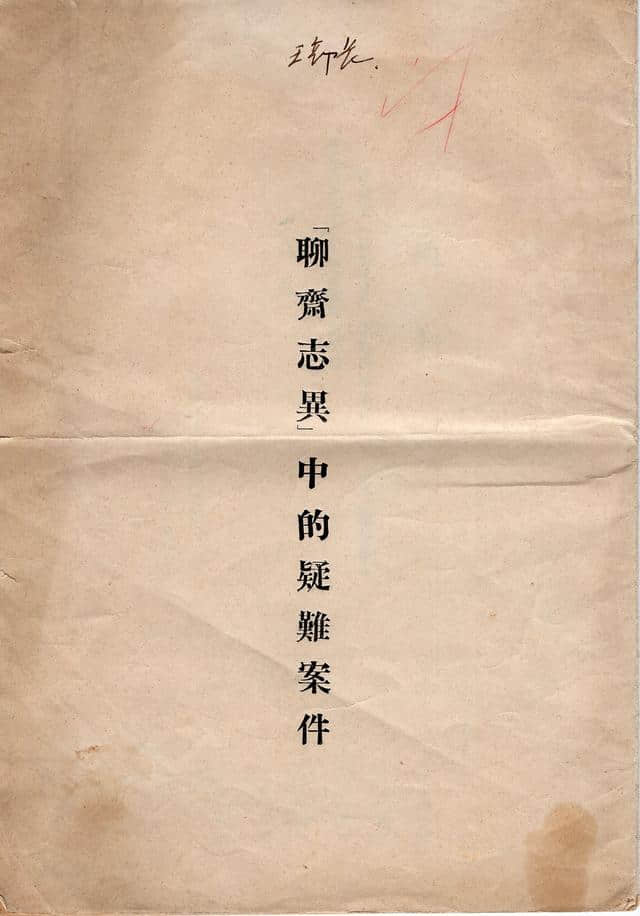 王部长
「聊齋志異」中的疑難案件